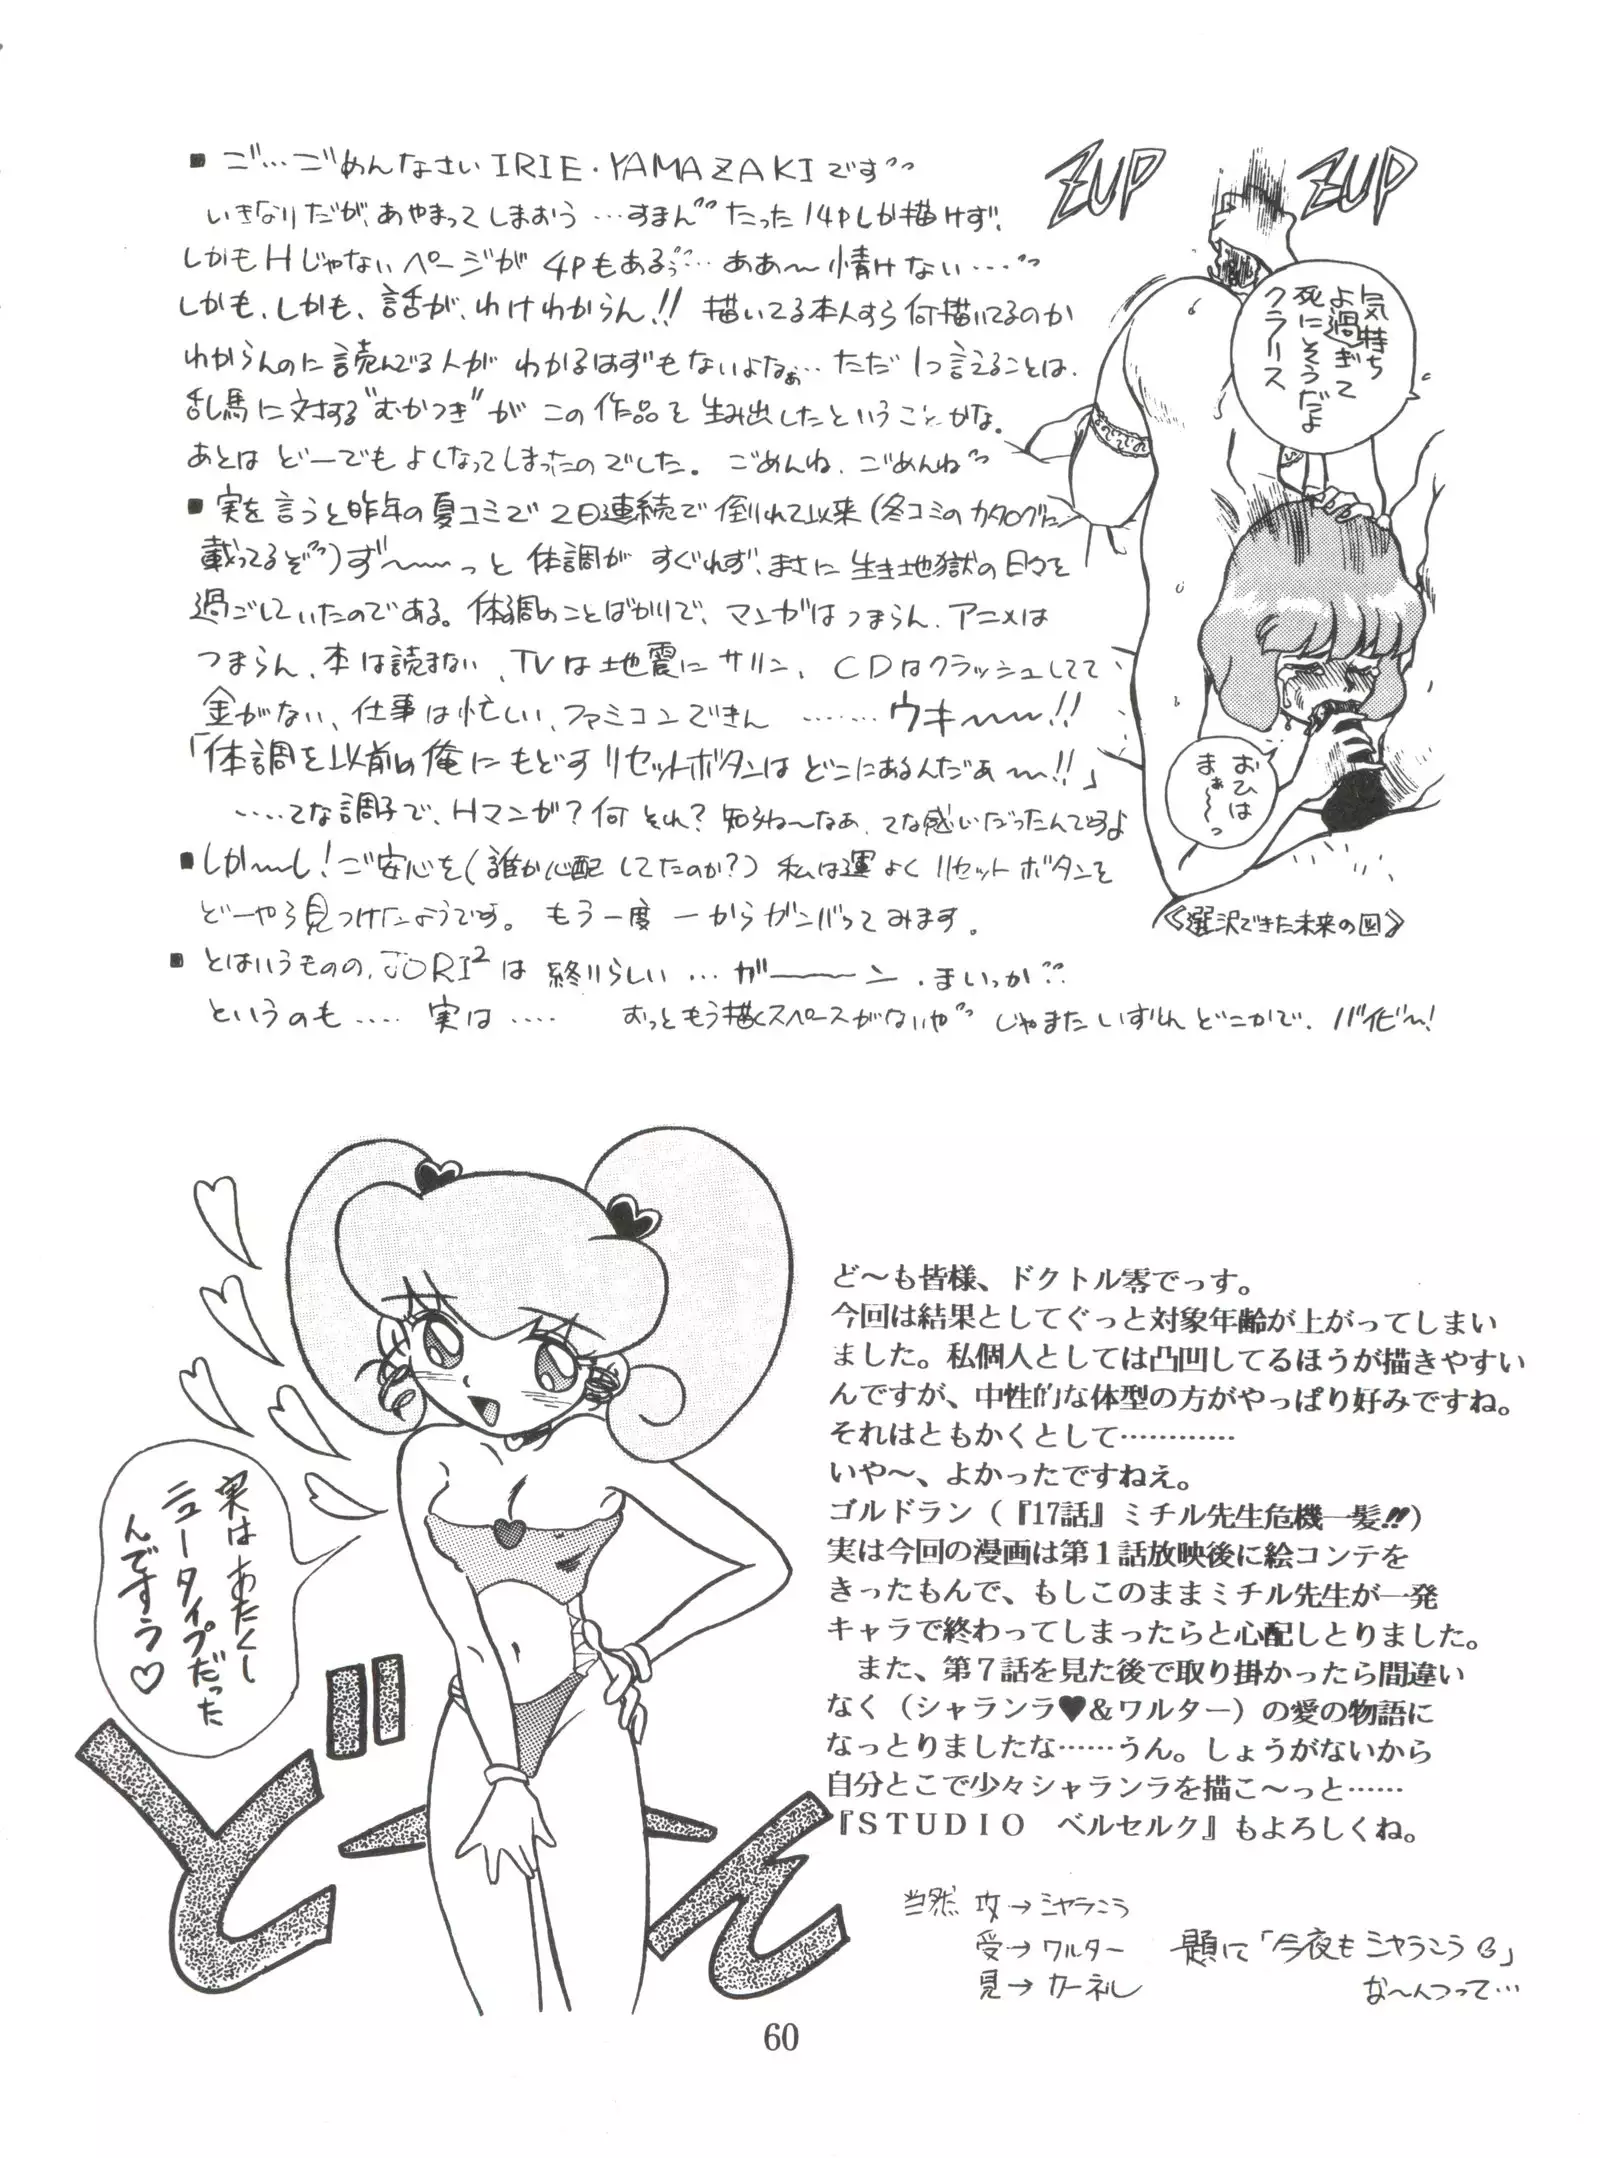 ■ ゴ…ごめんなさいIRIE・YAMAZAKIです
いきなりだが、あやまってしまおう…すまん たった14Pしか描けず、
しかもHじゃないページが4Pもあるぅ… ああ〜情けない…
しかも、しかも、話が、わけわからん!! 描いてる本人すら何描いてるのか
わからんのに読んでる人がわかるはずもないよなぁ… ただ1つ言えることは、
乱馬に対する"むかつき"がこの作品を生み出したということかな。
あとはどーでもよくなってしまったのでした。ごめんね、ごめんね
■ 実を言うと昨年の夏コミで2日連続で倒れて以来(冬コミのカタログに
載ってるぞ)ず〜〜〜っと体調がすぐれず、まさに生き地獄の日々を
過ごしていたのである。体調のことばかりで、マンガはつまらん、アニメは
つまらん、本は読まない、TVは地震にサリン、CDはクラッシュしてて
金がない、仕事は忙しい、ファミコンできん ……ウキ〜〜〜!!
「体調を以前の俺にもどすリセットボタンはどこにあるんだぁ〜!!」
……てな調子で、Hマンガ?何それ?知らね〜なぁ、てな感じだったんですよ
■ しか〜〜し!ご安心を(誰か心配してたのか?)私は運よくリセットボタンを
どーやら見つけたようです。もう一度一からガンバってみます。
■ とはいうものの、JORI²は終りらしい…ガーーーン、まいっか
というのも…… 実は…… おっともう描くスペースがないや じゃまたいずれどこかで、バイビ〜!
ZUP
ZUP
気持ち
よ過ぎて
死にそうだよ
クラリース
おひは
まぁ〜〜っ
《選択できた未来の図》
実はあたくし
ニュータイプだった
んですう♡
ど〜ん
ど〜も皆様、ドクトル零でっす。
今回は結果としてぐっと対象年齢が上がってしまい
ました。私個人としては凸凹してるほうが描きやすい
んですが、中性的な体型の方がやっぱり好みですね。
それはともかくとして…………
いや〜、よかったですねえ。
ゴルドラン(『17話』ミチル先生危機一髪!!)
実は今回の漫画は第1話放映後に絵コンテを
きったもんで、もしこのままミチル先生が一発
キャラで終わってしまったらと心配しとりました。
また、第7話を見た後で取り掛かったら間違い
なく(シャランラ♥&ワルター)の愛の物語に
なっとりましたな……うん。しょうがないから
自分とこで少々シャランラを描こ〜っと……
『STUDIO ベルセルク』もよろしくね。
当然 攻→シャラこう
受→ワルター
見→カーネル
題に「今夜もシャらこう
な〜んつって…
60